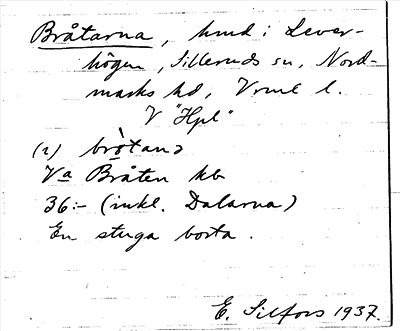 Bråtarna, hmd i Lever-
högen, Silleruds sn, Nord-
marks hd, Vrml l.
V "Hpl"
(2) brɷ̀tanɔ
Va Bråten kb
36:- (inkl. Dalarna)
En stuga borta.
E. Silfors 1937.